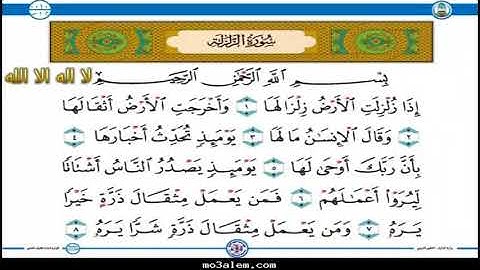 سُورَةُ الزَّلْزَلَةِ
لا إله إلا الله
بِسْمِ اللَّهِ الرَّحْمَٰنِ الرَّحِيمِ
إِذَا زُلْزِلَتِ الْأَرْضُ زِلْزَالَهَا ١ وَأَخْرَجَتِ الْأَرْضُ أَثْقَالَهَا
٢ وَقَالَ الْإِنسَانُ مَا لَهَا ٣ يَوْمَئِذٍ تُحَدِّثُ أَخْبَارَهَا ٤
بِأَنَّ رَبَّكَ أَوْحَىٰ لَهَا ٥ يَوْمَئِذٍ يَصْدُرُ النَّاسُ أَشْتَاتًا
لِّيُرَوْا أَعْمَالَهُمْ ٦ فَمَن يَعْمَلْ مِثْقَالَ ذَرَّةٍ خَيْرًا
يَرَهُ ٧ وَمَن يَعْمَلْ مِثْقَالَ ذَرَّةٍ شَرًّا يَرَهُ ٨
mo3alem.com